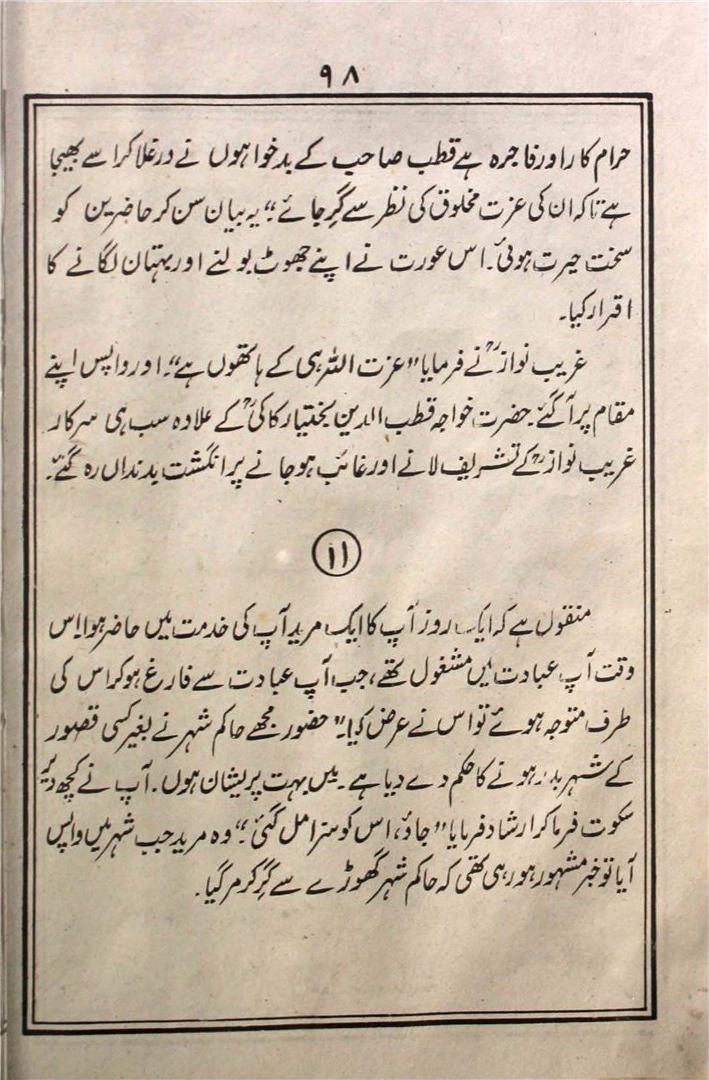 ۹۸
حرام کار اور فاجرہ ہے قطب صاحب کے بدخواہوں نے ورغلا کر اسے بھیجا
ہے تاکہ ان کی عزت مخلوق کی نظر سے گر جائے‘‘ یہ بیان سن کر حاضرین کو
سخت حیرت ہوئی۔ اس عورت نے اپنے جھوٹ بولنے اور بہتان لگانے کا
اقرار کیا۔
غریب نوازؒ نے فرمایا ’’عزت اللہ ہی کے ہاتھوں ہے‘‘۔ اور واپس اپنے
مقام پر آگئے۔ حضرت خواجہ قطب الدین بختیار کاکیؒ کے علاوہ سب ہی سرکار
غریب نوازؒ کے تشریف لانے اور غائب ہو جانے پر انگشت بدنداں رہ گئے۔
۱۱
منقول ہے کہ ایک روز آپ کا ایک مرید آپ کی خدمت میں حاضر ہوا اس
وقت آپ عبادت میں مشغول تھے، جب آپ عبادت سے فارغ ہو کر اس کی
طرف متوجہ ہوئے تو اس نے عرض کیا۔ ’’حضور مجھے حاکم شہر نے بغیر کسی قصور
کے شہر بدر ہونے کا حکم دے دیا ہے۔ میں بہت پریشان ہوں۔ آپ نے کچھ دیر
سکوت فرما کر ارشاد فرمایا ’’جاؤ، اس کو سزا مل گئی‘‘۔ وہ مرید جب شہر میں واپس
آیا تو خبر مشہور ہو رہی تھی کہ حاکم شہر گھوڑے سے گر کر مر گیا۔